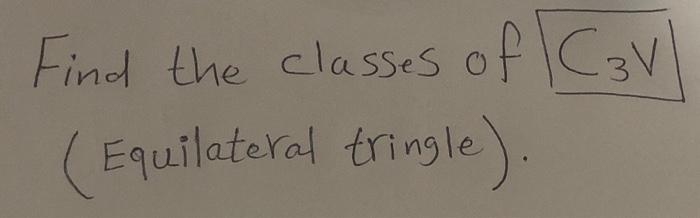 Find the classes of C₃V
(Equilateral tringle).